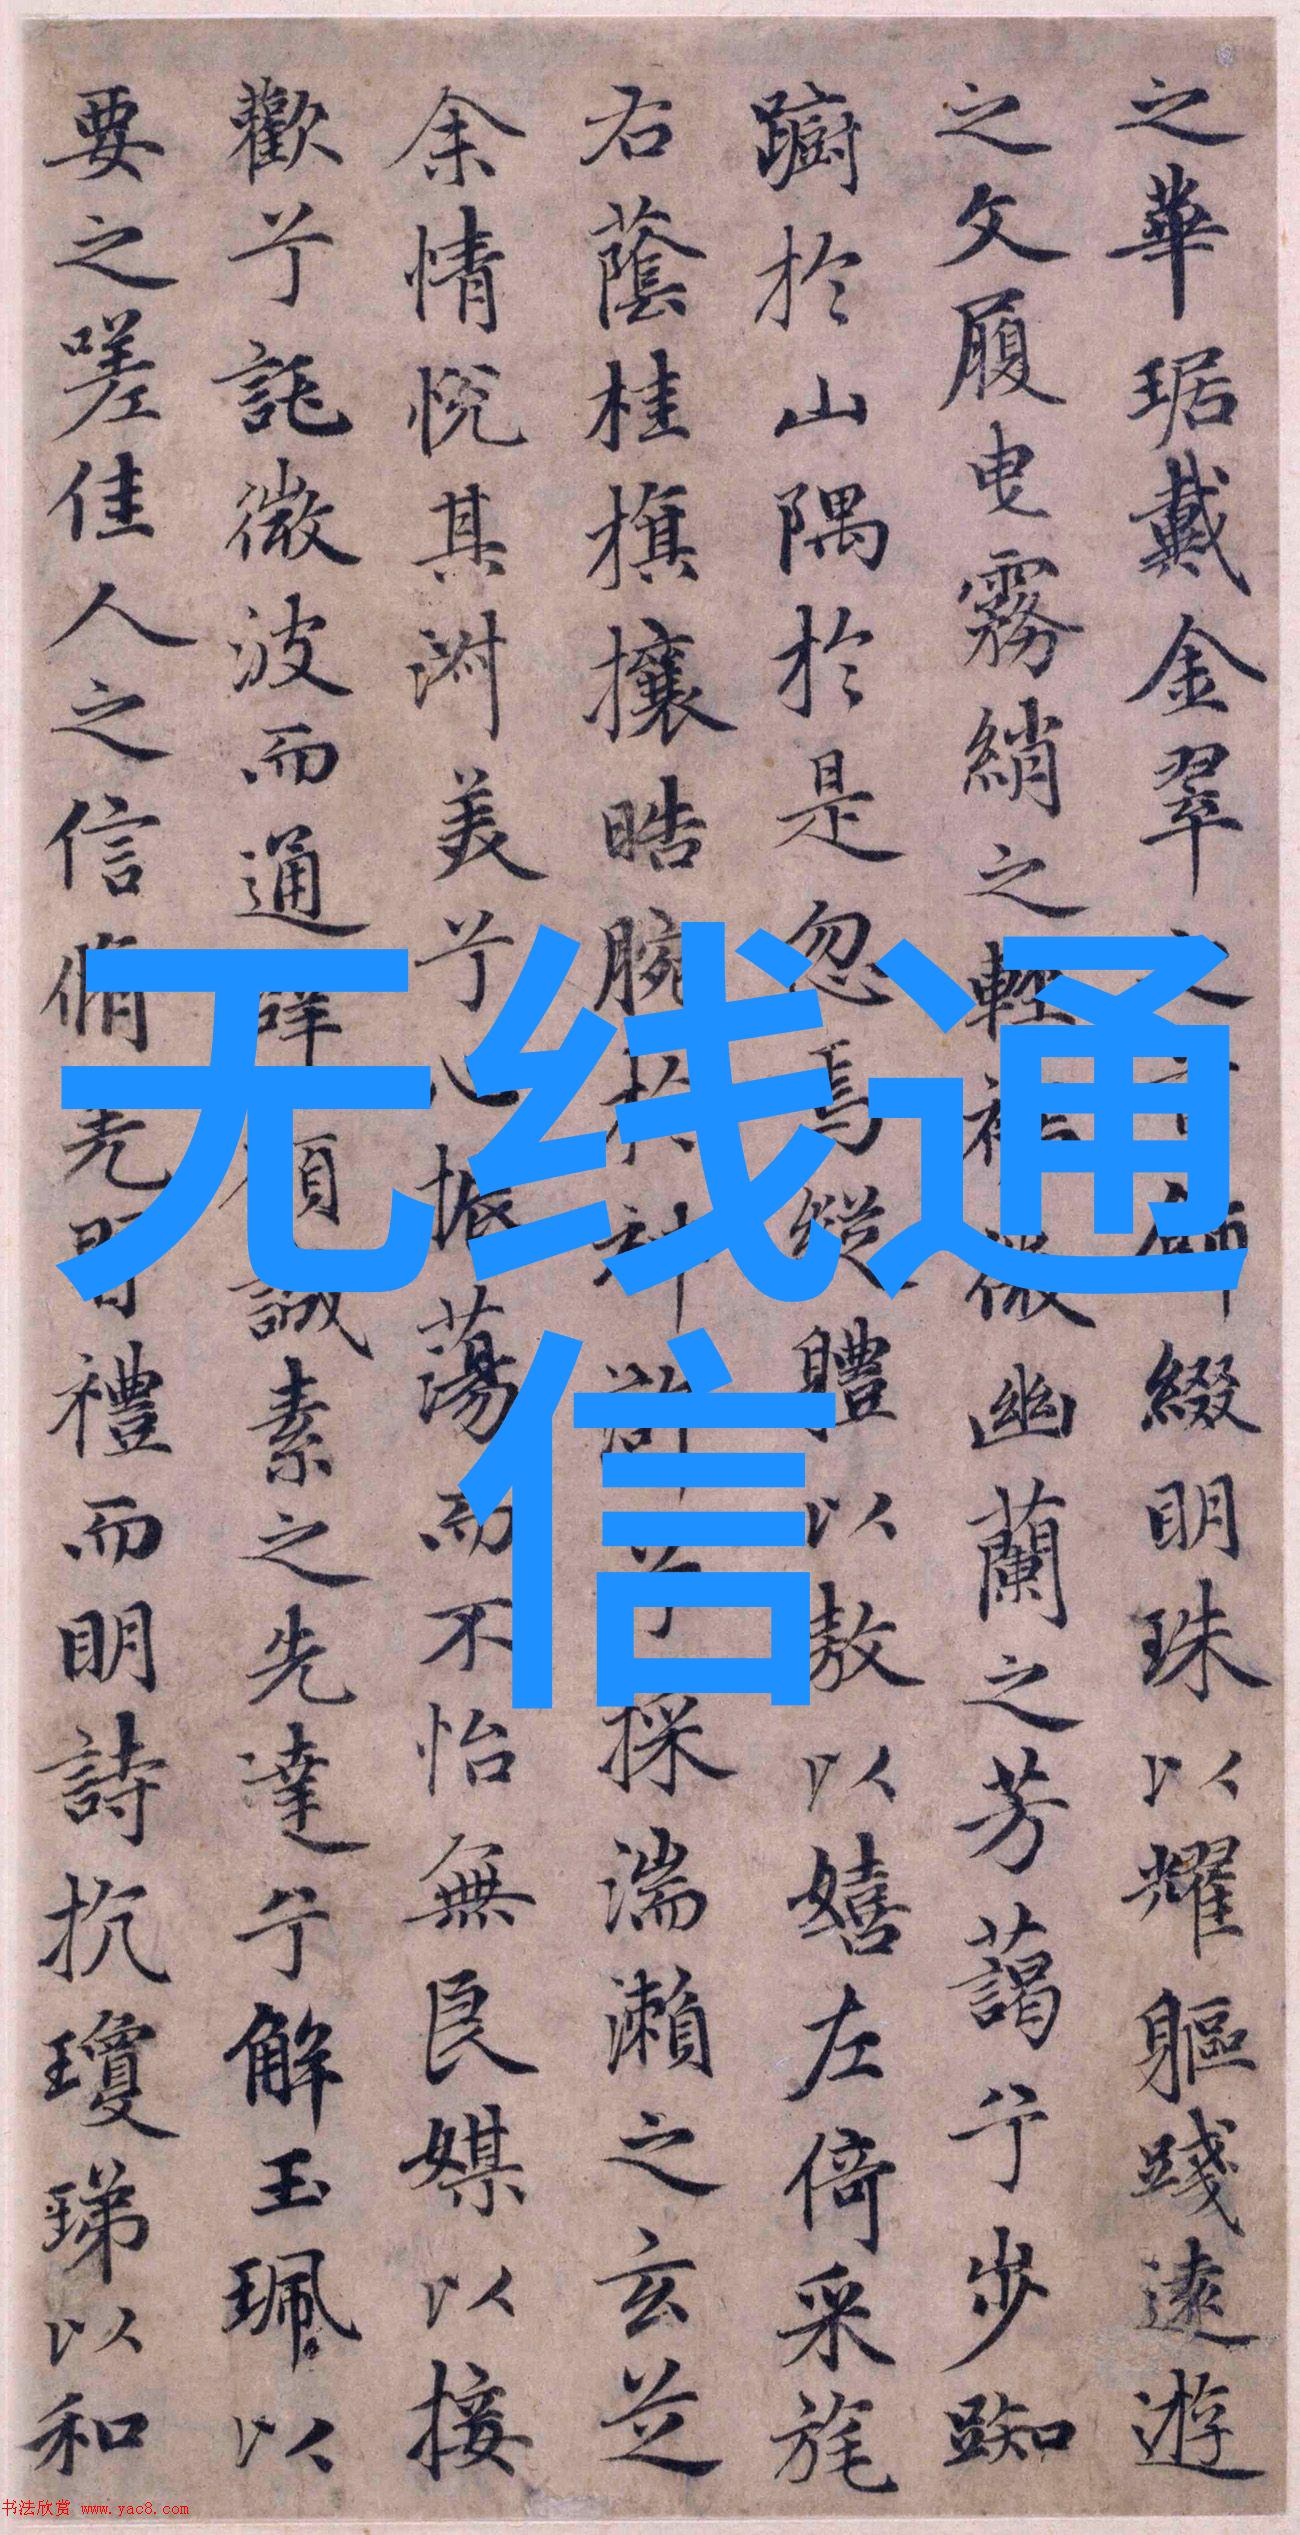 之華琚戴金翠之首飾綴眀珠以耀軀踐遠遊
之文履曳霧綃之輕裾微幽蘭之芳藹兮步踟
躕於山隅於是忽焉縱軆以敖以嬉左倚采旄
右蔭桂旗攘皓腕於神滸兮採湍瀨之玄芝
余情悅其淑美兮心振蕩而不怡無良媒以接
歡兮託微波而通辭願誠素之先達兮解玉珮以
要之嗟佳人之信脩羌習禮而眀詩抗瓊珶以和
无线通
信
书法欣赏 www.yac8.com